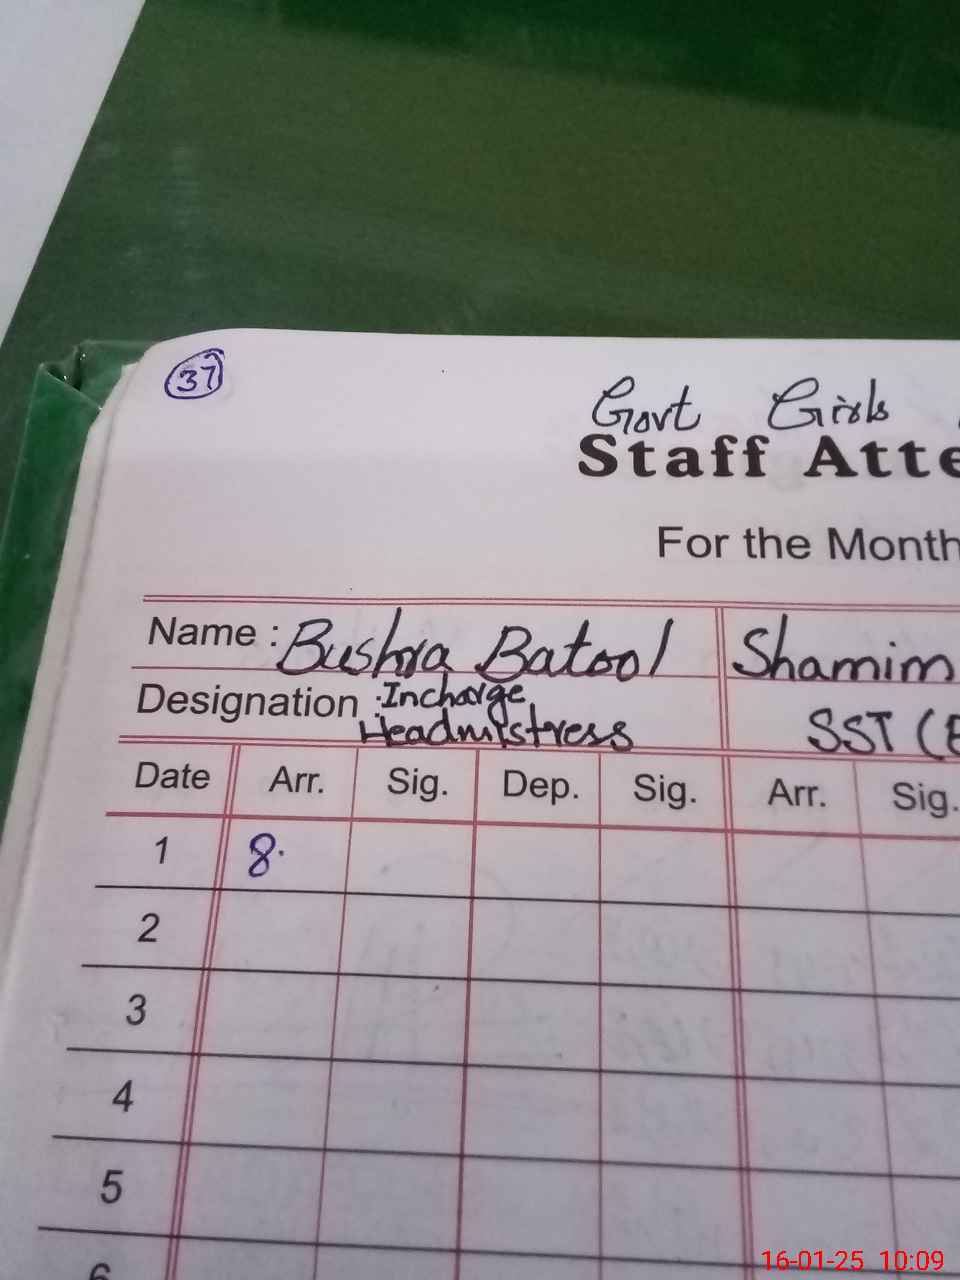 37
Govt Girls
Staff Atte
For the Month
Name : Bushra Batool Shamim
Designation : Incharge
Headmistress SST (
Date Arr. Sig. Dep. Sig. Arr. Sig.
1 8.
2
3
4
5
6
16-01-25 10:09